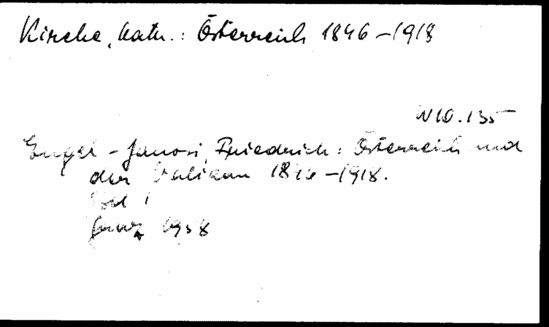 Kirche, kath.: Österreich 1846-1918
W10.135
Engel-Janosi, Friedrich: Österreich und
der Vatikan 1846-1918.
Bd 1
Graz 1958